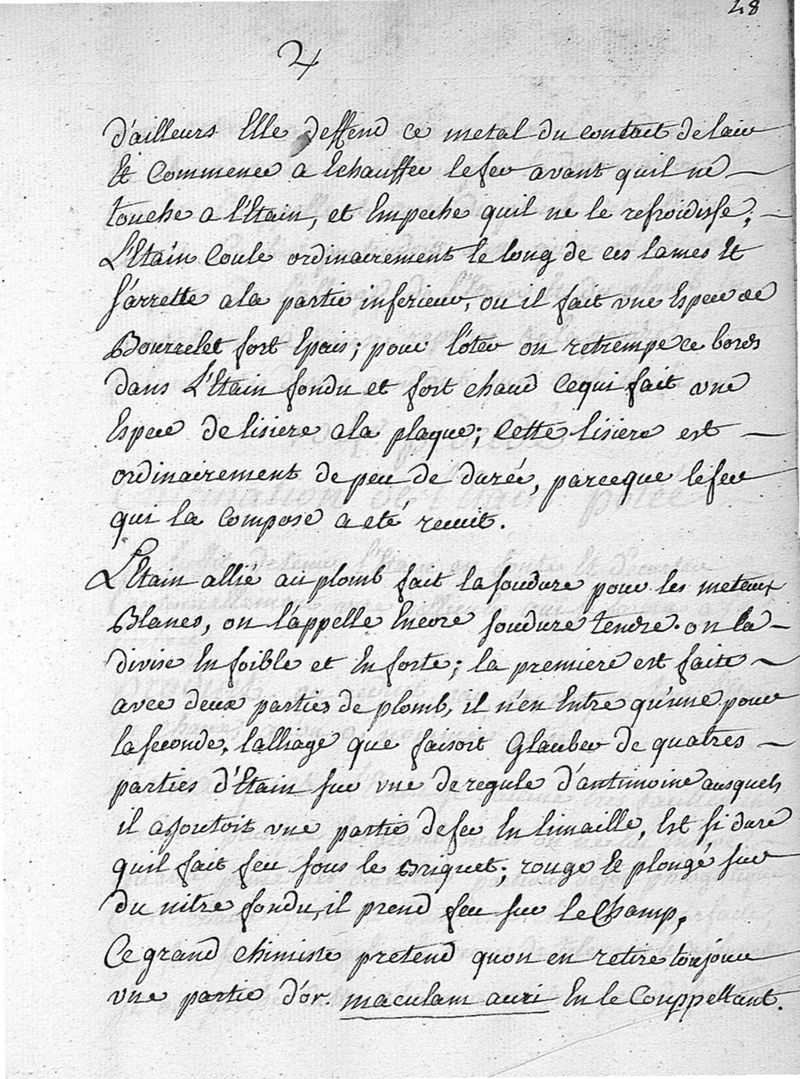 48
♃
d'ailleurs Elle deffend ce metal du contact de lair
Et Commence a Echauffer le fer avant quil ne —
touche a l'Etain, et Empeche quil ne le refroidisse; —
L'Etain Coule ordinairement le long de ces lames Et
s'arrette a la partie inferieur, ou il fait une Espece de
Bourrelet fort Epais; pour l'oter on retrempe ce bords
dans L'Etain fondu et fort chaud Cequi fait une
Espece de lisiere a la plaque; Cette lisiere est —
ordinairement de peu de durée, parceque le fer
qui la Compose a eté recuit.
L'Etain allié au plomb fait la soudure pour les metaux
Blancs, on l'appelle Encore soudure tendre. on la —
divise En foible et En forte; la premiere est faite —
avec deux parties de plomb, il n'en Entre qu'une pour
la seconde. lalliage que faisoit Glauber de quatres —
parties d'Etain sur une de regule d'antimoine ausquels
il ajoutoit une partie de fer En limaille, Est si dure
quil fait feu sous le Briquet; rouge Et plongé sur
du nitre fondu, il prend feu sur le Champ,
Ce grand chimiste pretend quon en retire toujour
une partie d'or. maculam auri En le Couppellant.